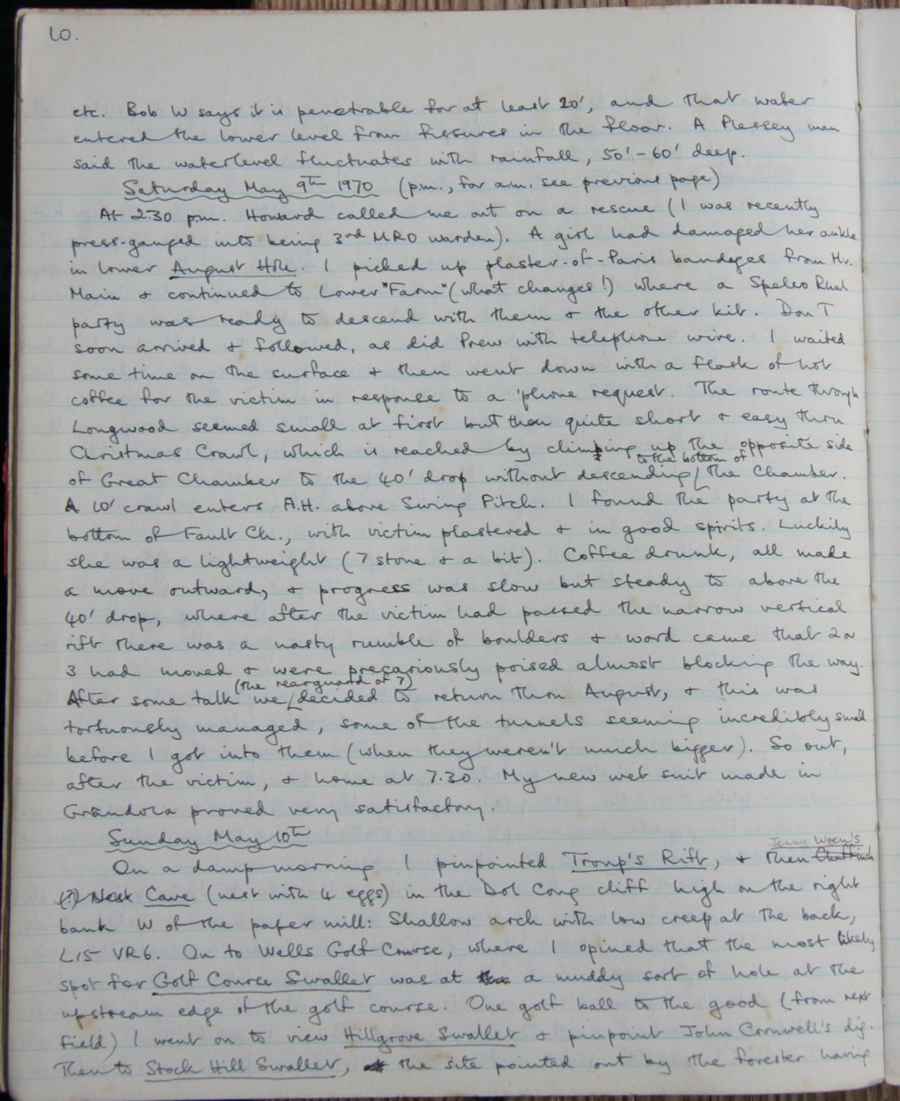 10.
etc. Bob W says it is penetrable for at least 20', and that water
entered the lower level from fissures in the floor. A Plessey man
said the waterlevel fluctuates with rainfall, 50'-60' deep.
Saturday May 9th 1970 (p.m., for a.m. see previous page)
At 2.30 p.m. Howard called me out on a rescue (I was recently
press-ganged into being 3rd MRO warden). A girl had damaged her ankle
in Lower August Hole. I picked up plaster-of-Paris bandages from Mr.
Main & continued to Lower "Farm" (what changes!) where a Speleo Rhal
party was ready to descend with them & the other kit. Don T
soon arrived & followed, as did Prew with telephone wire. I waited
some time on the surface & then went down with a flask of hot
coffee for the victim in response to a 'phone request. The route through
Longwood seemed small at first but then quite short & easy thru
Christmas Crawl, which is reached by climbing up the opposite side
of Great Chamber to the 40' drop without descending to the bottom of the Chamber.
A 10' crawl enters A.H. above Swing Pitch. I found the party at the
bottom of Fault Ch., with victim plastered & in good spirits. Luckily
she was a lightweight (7 stone & a bit). Coffee drunk, all made
a move outward, & progress was slow but steady to above the
40' drop, where after the victim had passed the narrow vertical
rift there was a nasty rumble of boulders & word came that 2 or
3 had moved & were precariously poised almost blocking the way.
After some talk we (the rearguard of 7) decided to return thru August, & this was
tortuously managed, some of the tunnels seeming incredibly small
before I got into them (when they weren't much bigger). So out,
after the victim, & home at 7.30. My new wet suit made in
Grandola proved very satisfactory.
Sunday May 10th
On a damp morning I pinpointed Troup's Rift, & then Jenny Wren's
(?) Nest Cave (nest with 4 eggs) in the Dol Cong cliff high on the right
bank W of the paper mill: Shallow arch with low creep at the back,
L15 VR6. On to Wells Golf Course, where I opined that the most likely
spot for Golf Course Swallet was at a muddy sort of hole at the
upstream edge of the golf course. One golf ball to the good (from next
field) I went on to view Hillgrove Swallet & pinpoint John Cornwell's dig.
Then to Stock Hill Swallet, the site pointed out by the forester having